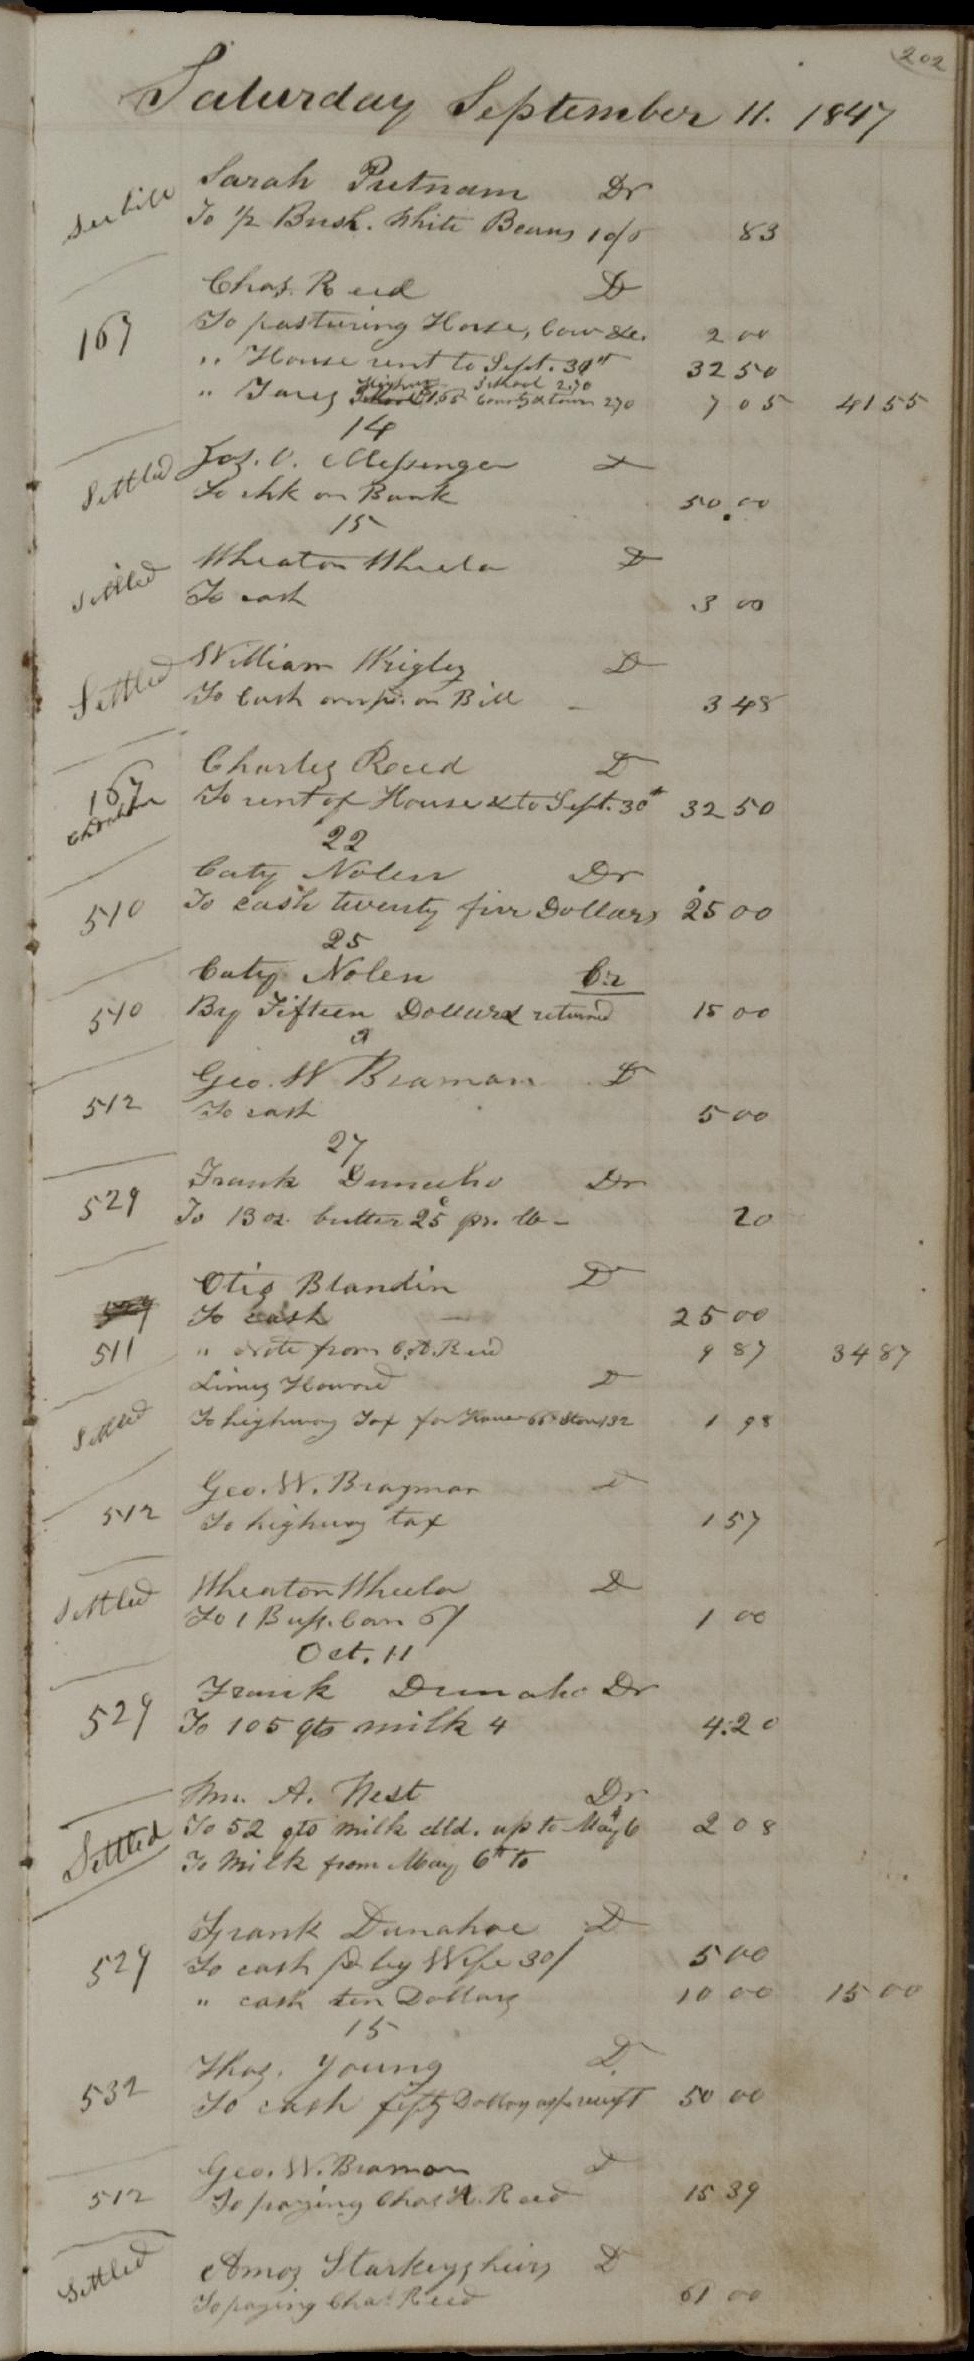 202
Saturday September 11. 1847
See bill Sarah Putnam Dr
To 1/2 Bush. White Beans 10/ 83
Chas. Reed D
167 To pasturing Horse, Cow &c. 2 00
" House rent to Sept. 30th 32 50
" Taxes Highway 1.65 School 2.70 County & town 2.70 7 05 41 55
14
Settled Jos. O. Messenger D
To chk on Bank 50.00
15
Settled Wheaton Wheeler D
To cash 3 00
Settled William Wrigley D
To Cash on Bill 3 48
Charles Reed D
167 To rent of House & to Sept. 30th 32 50
22
Caty Nolen Dr
510 To cash twenty five Dollars 25 00
25
Caty Nolen Cr
540 By Fifteen Dollars returned 15 00
Geo. W Braman D
512 To cash 5 00
27
529 Frank Dunaho Dr
To 13 oz. butter 25c pr. lb - 20
Otis Blandin D
To cash 25 00
511 " Note from C. H. Reed 9 87 34 87
Settled Limus Howard D
To highway Tax for House 66 Stow 132 1 98
Geo. W. Bragman D
512 To highway tax 1 57
Settled Wheaton Wheeler D
To 1 Bush. Corn 6/ 1 00
Oct. 11
Frank Dunaho Dr
529 To 105 qts milk 4 4.20
Wm. A. West Dr
Settled To 52 qts milk dld. up to May 6 4 2 08
To Milk from May 6th to
Frank Dunahoe D
529 To cash pd by Wife 30/ 5 00
" cash ten Dollars 10 00 15 00
15
Thos. Young D.
532 To cash fifty Dollars as pr receipt 50 00
Geo. W. Braman D
512 To paying Chas H. Reed 15 39
Settled Amos Starkeys heirs D
To paying Chas. Reed 61 00